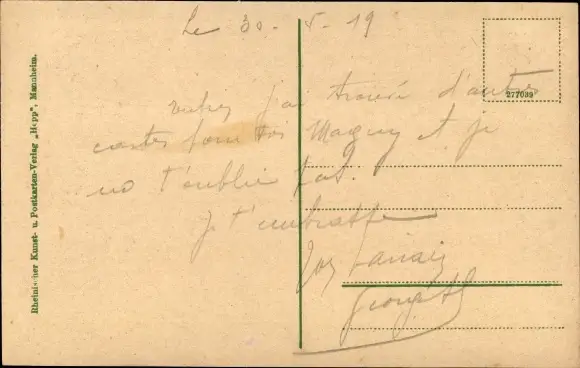 Le 30 - 5 - 19
j'ai trouvé d'autres
cartes pour toi Maguy et je
ne t'oublie pas.
Je t'embrasse
Ton
277039
Rheinischer Kunst- u. Postkarten-Verlag „Hepp", Mannheim.